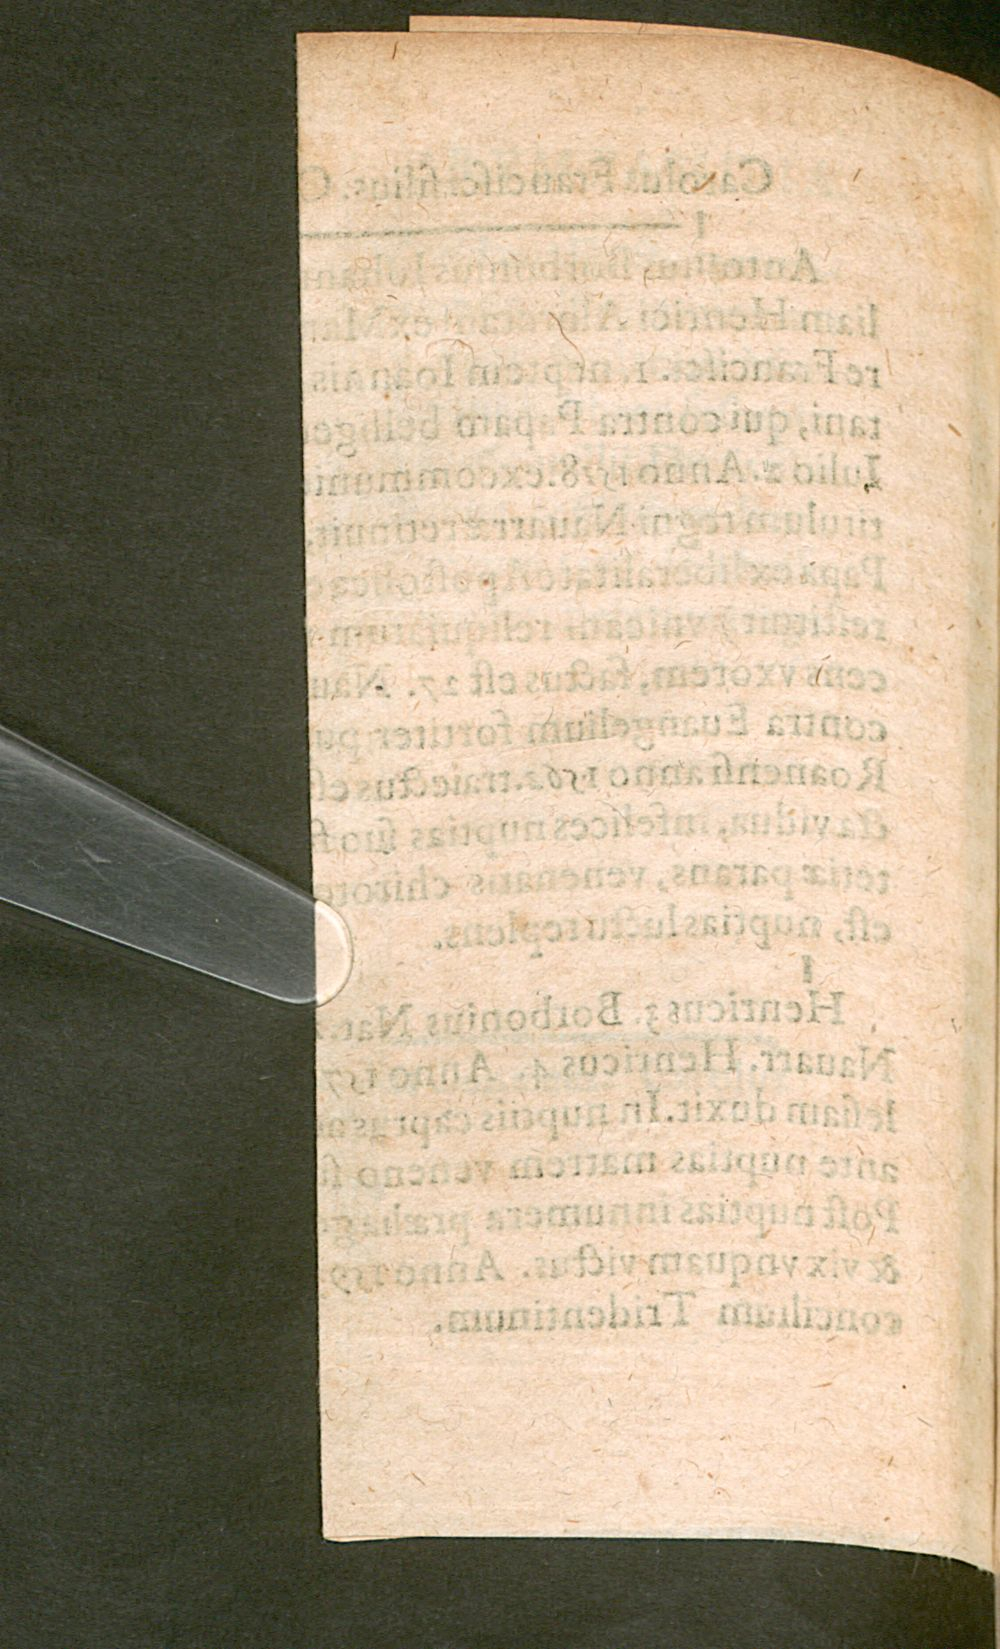 Carolus Francisci filius. C
Antonius Borbonius Iohan
liam Henrici Albretani ex Mar
re Francisci. 1. neptem Ioannis
tani, qui contra Papam bellige
Iulio 2. Anno excommuni
titulum regni Nauarræ retinuit.
Papa ex liberalitate Apostolica
restituit, reliquiarum
cens vxorem, factus est 27. Nau
contra Euangelium fortiter pu
Roanensi anno 1562. traiectus es
cta vidua, infelices nuptias suo f
tetiæ parans, venenatis chirote
est, nuptias luctu replens.
Henricus 3. Borbonius Nau.
Nauarr. Henricus 4. Anno 157
lesiam duxit. In nuptiis captus
ante nuptias matrem veneno s
Post nuptias innumera præliag
& vix vnquam victus. Anno 159
concilium Tridentinum.